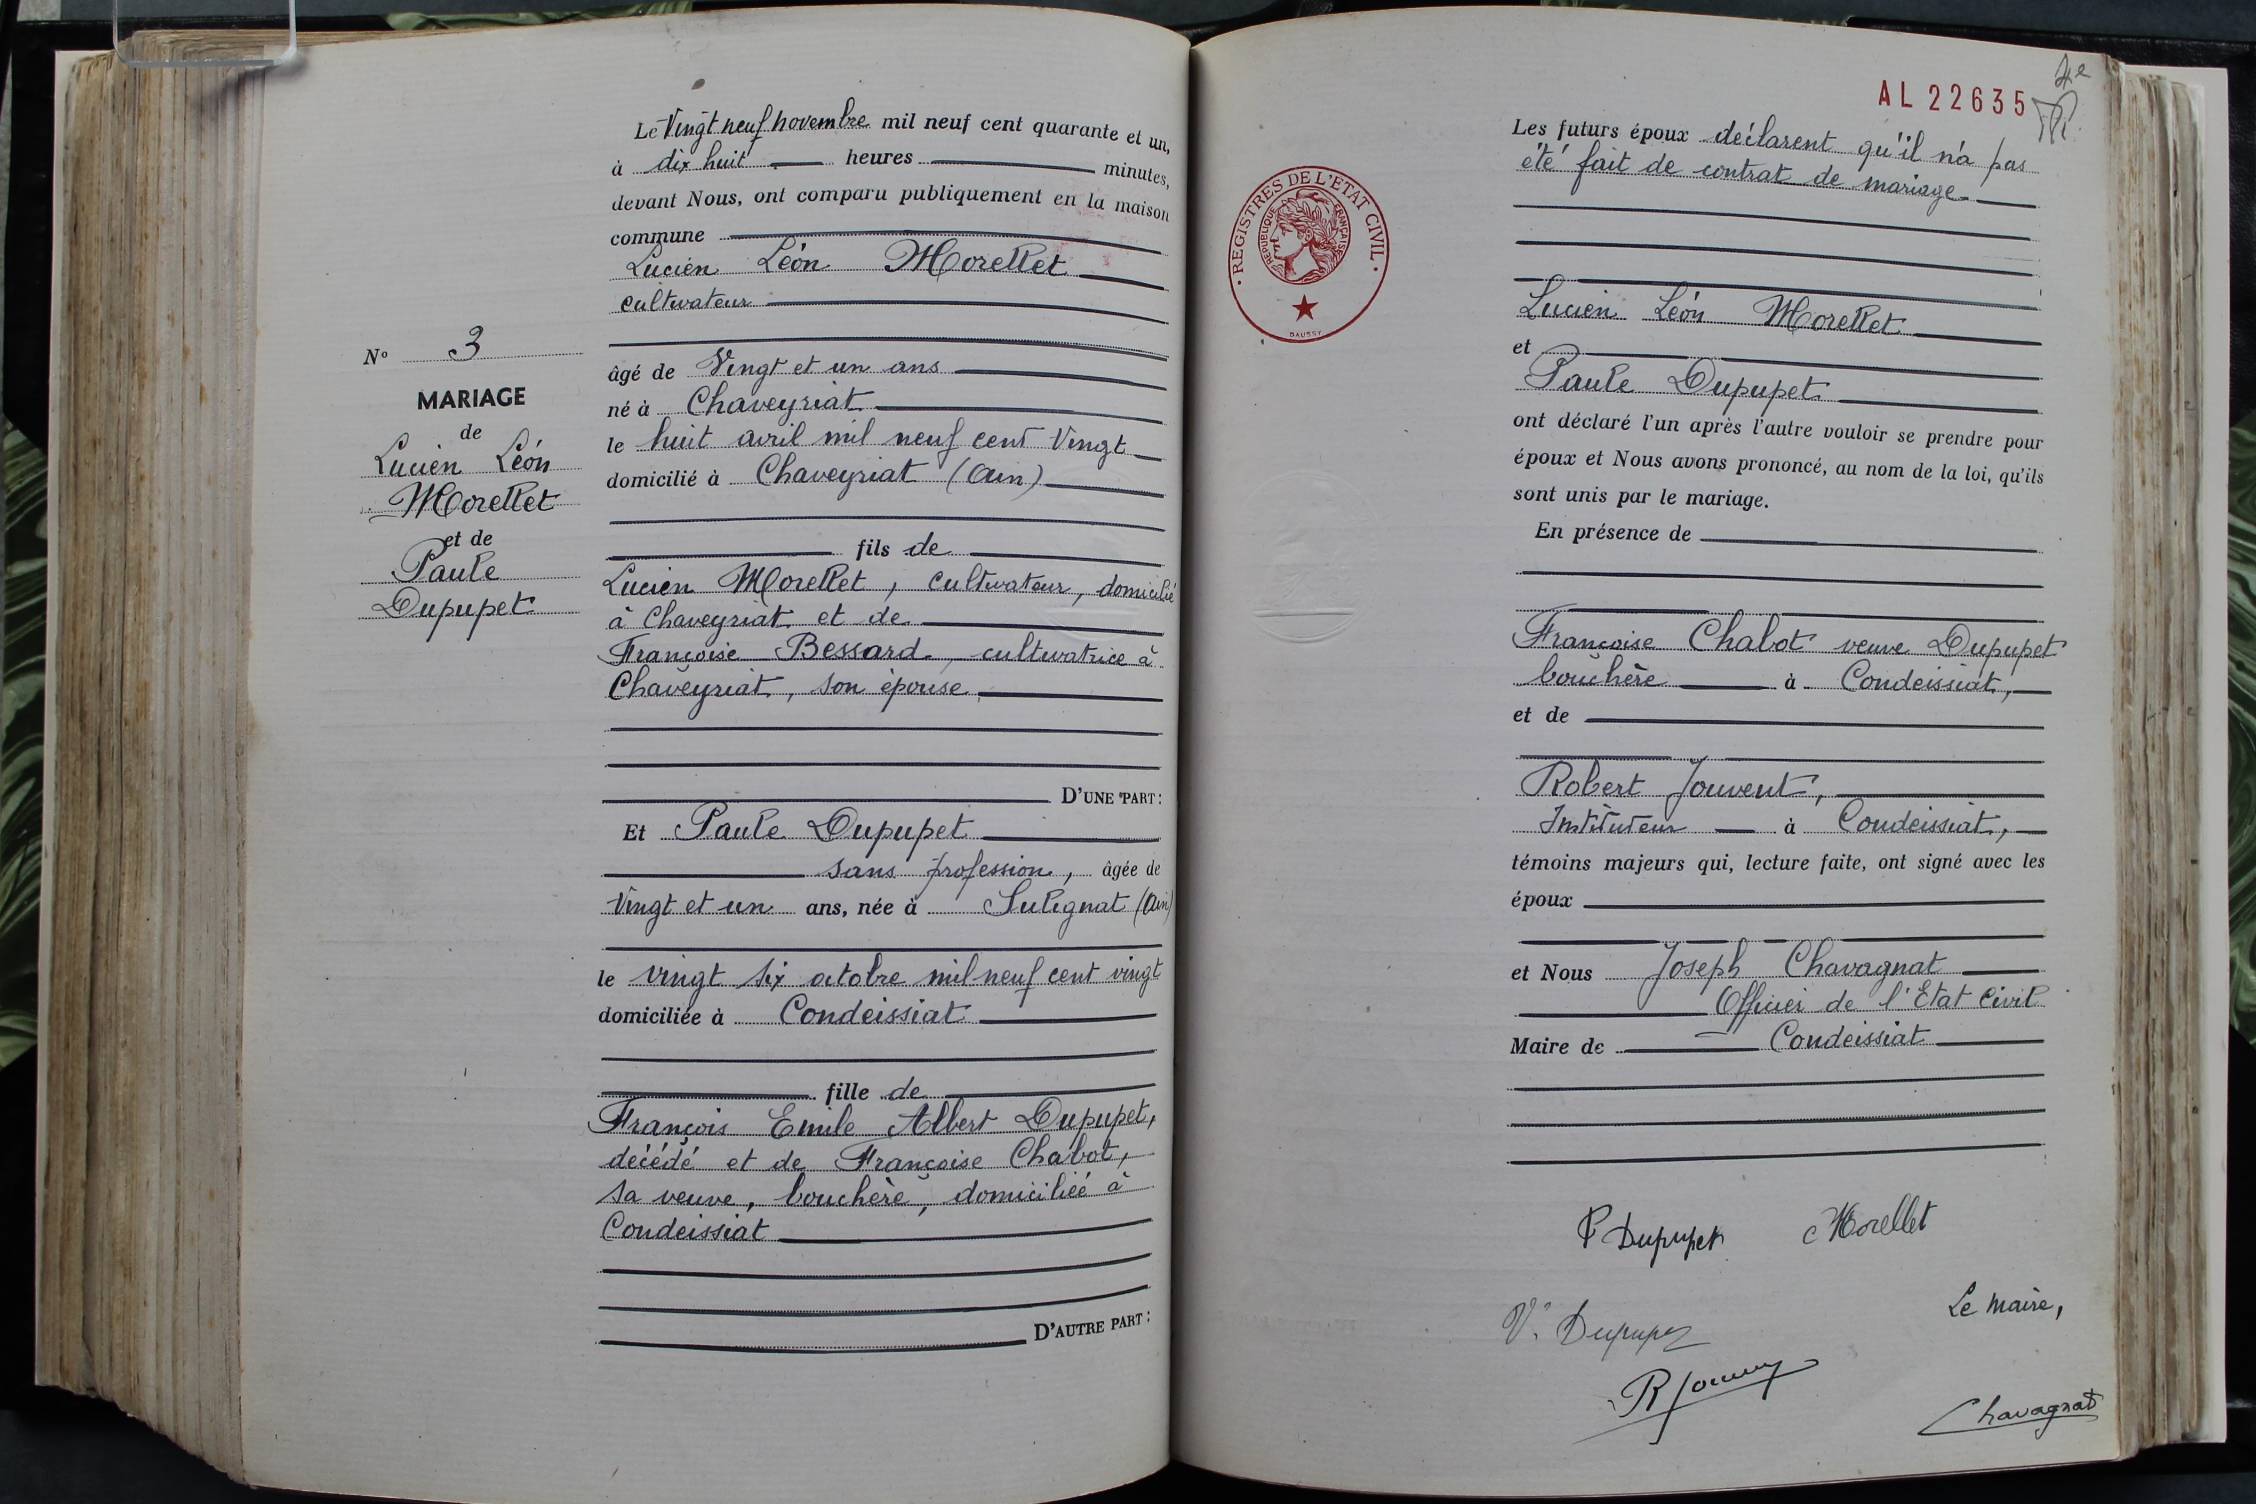 Le Vingt neuf novembre mil neuf cent quarante et un,
à dix huit heures minutes,
devant Nous, ont comparu publiquement en la maison
commune
Lucien Léon Morellet
cultivateur
N° 3
MARIAGE
de
Lucien Léon
Morellet
et de
Paule
Dupupet
âgé de Vingt et un ans
né à Chaveyriat
le huit avril mil neuf cent Vingt
domicilié à Chaveyriat (Ain)
fils de
Lucien Morellet, cultivateur, domicilié
à Chaveyriat et de
Françoise Bessard, cultivatrice à
Chaveyriat, son épouse,
D'UNE PART :
Et Paule Dupupet
sans profession, âgée de
Vingt et un ans, née à Sulignat (Ain)
le vingt six octobre mil neuf cent vingt
domiciliée à Condeissiat
fille de
François Emile Albert Dupupet,
décédé et de Françoise Chabot,
sa veuve, bouchère, domiciliée à
Condeissiat
D'AUTRE PART :
4e
AL 22635
Les futurs époux déclarent qu'il n'a pas
été fait de contrat de mariage
REGISTRES DE L'ETAT CIVIL
REPUBLIQUE FRANÇAISE
DAUSSY
Lucien Léon Morellet
et
Paule Dupupet
ont déclaré l'un après l'autre vouloir se prendre pour
époux et Nous avons prononcé, au nom de la loi, qu'ils
sont unis par le mariage.
En présence de
Françoise Chabot veuve Dupupet
bouchère à Condeissiat,
et de
Robert Jouvent,
Instituteur à Condeissiat,
témoins majeurs qui, lecture faite, ont signé avec les
époux
et Nous Joseph Chavagnat
Officier de l'Etat Civil
Maire de Condeissiat
P Dupupet Morellet
Ve Dupupet
Le Maire,
R Jouvent
Chavagnat